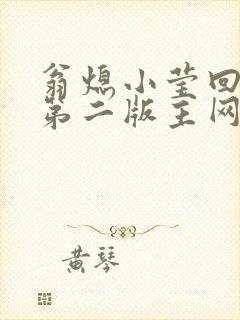 翁熄小莹回
第二版主网
黄琴